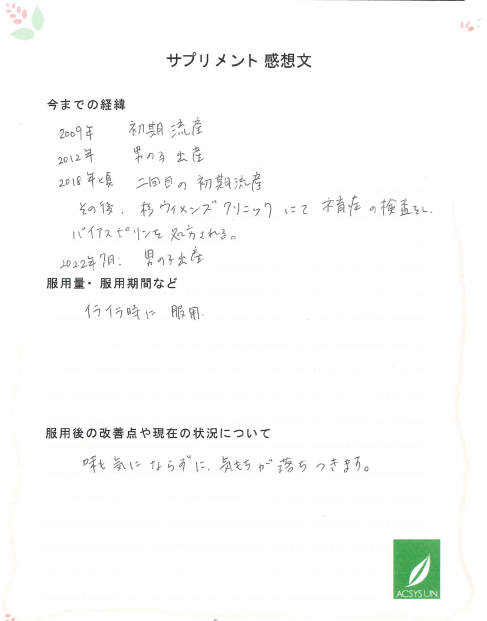 サプリメント 感想文
今までの経緯
2009年 初期流産
2012年 男の子出産
2018年頃 二回目の初期流産
その後、杉ウィメンズクリニックにて不育症の検査をし、
バイアスピリンを処方される。
2022年7月: 男の子出産
服用量・服用期間など
イライラ時に 服用.
服用後の改善点や現在の状況について
味も気にならずに、気もちが落ちつきます。
ACSYSUN